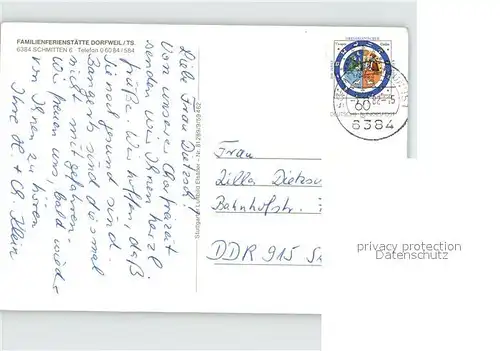 FAMILIENFERIENSTÄTTE DORFWEIL/TS.
6384 SCHMITTEN 6 Telefon 0 60 84 / 584
Liebe Frau Dietzsch!
Von unserer Chorfreizeit
senden wir Ihnen herzl.
Grüße. Wir hoffen, daß
Sie noch gesund sind.
Bangerts sind diesmal
nicht mitgefahren.
Wir freuen uns, bald wieder
von Ihnen zu hören
Ihre H. + Ch. Klein
60
DEUTSCHE BUNDESPOST
6384
Frau
Zilla Dietzs
Bahnhofstr.
DDR 915 S
privacy protection
Datenschutz